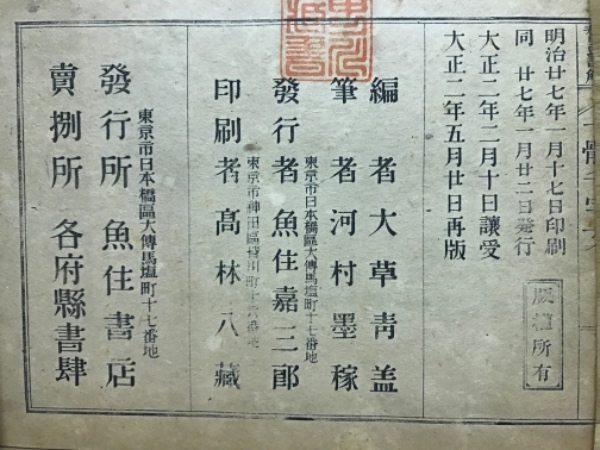 明治廿七年一月十七日印刷
同 廿七年一月廿二日発行
大正二年二月十日讓受
大正二年五月廿日再版
版權所有
編者大草靑盖
筆者河村墨稼
東京市日本橋區大傳馬塩町十七番地
發行者魚住嘉三郎
東京市神田區 川町十六番地
印刷者髙林八藏
東京市日本橋區大傳馬塩町十七番地
發行所魚住書店
賣捌所各府縣書肆